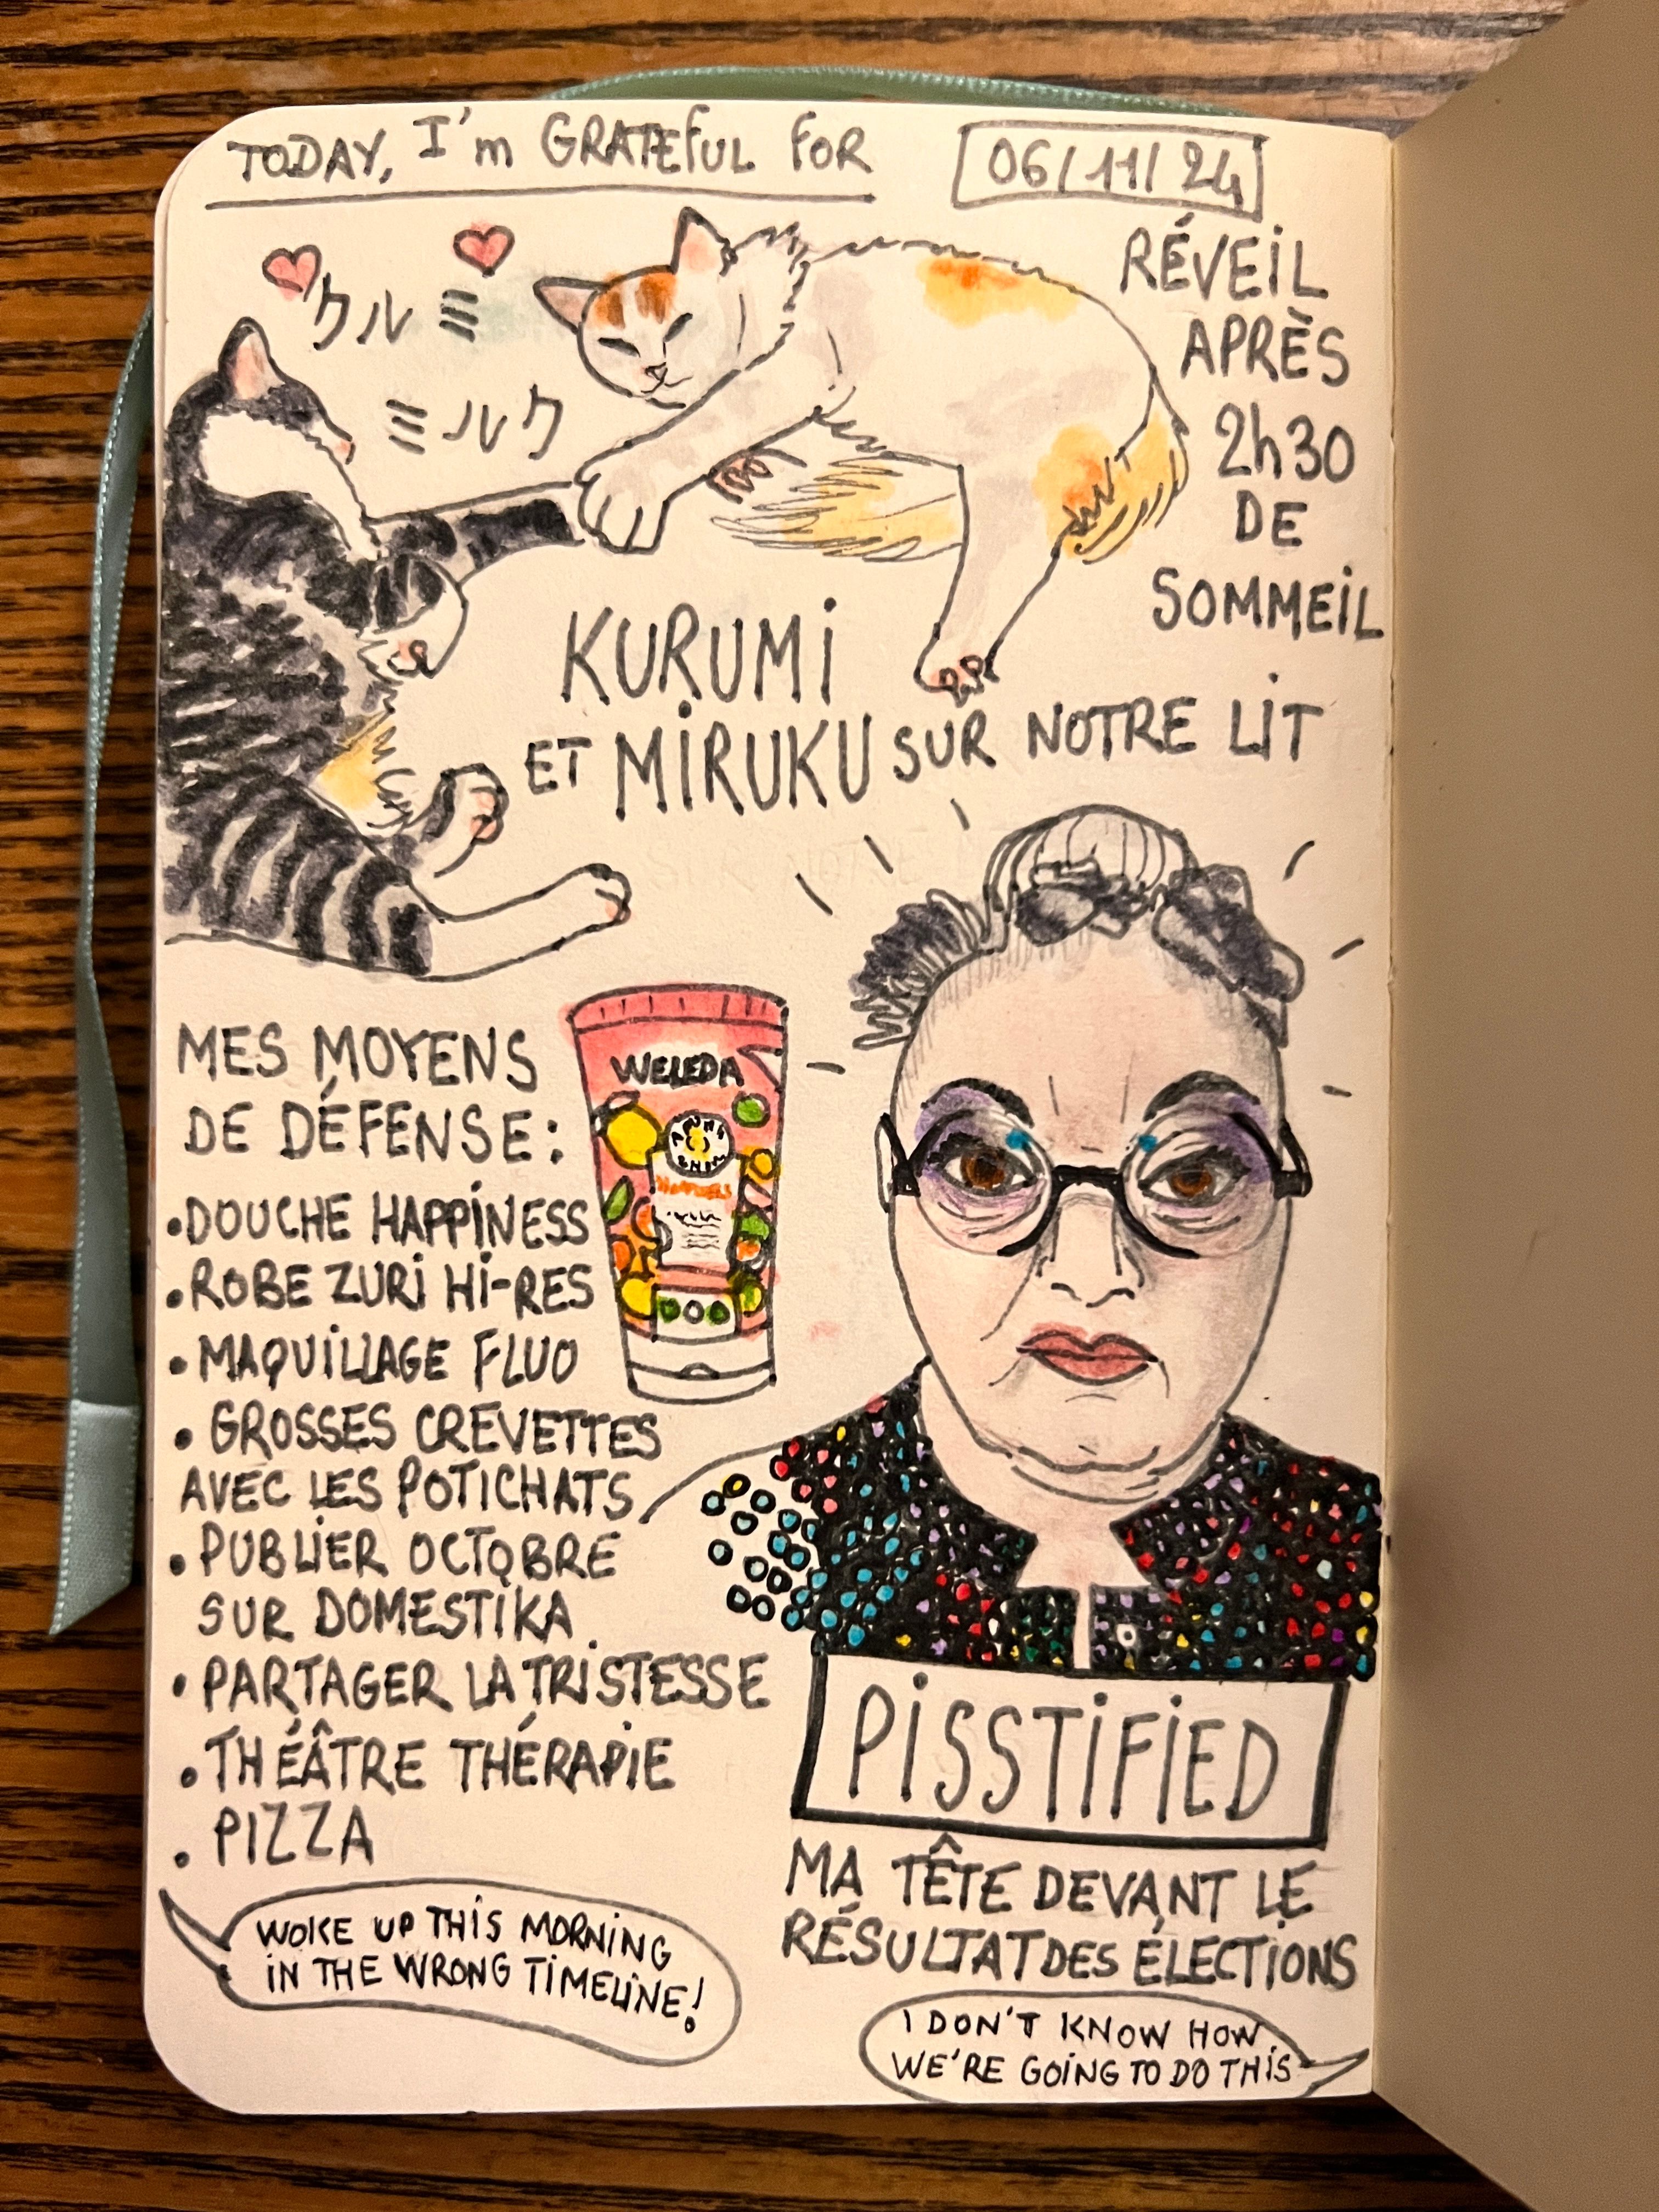 TODAY, I'm GRATEFUL FOR
06/11/24
RÉVEIL
APRÈS
2h30
DE
SOMMEIL
クルミ
ミルク
KURUMI
ET MIRUKU SUR NOTRE LIT
MES MOYENS
DE DÉFENSE:
•DOUCHE HAPPINESS
•ROBE ZURI HI-RES
•MAQUILLAGE FLUO
•GROSSES CREVETTES
AVEC LES POTICHATS
•PUBLIER OCTOBRE
SUR DOMESTIKA
•PARTAGER LA TRISTESSE
•THÉÂTRE THÉRAPIE
•PIZZA
WELEDA
PISSTIFIED
MA TÊTE DEVANT LE
RÉSULTAT DES ÉLECTIONS
WOKE UP THIS MORNING
IN THE WRONG TIMELINE!
I DON'T KNOW HOW
WE'RE GOING TO DO THIS